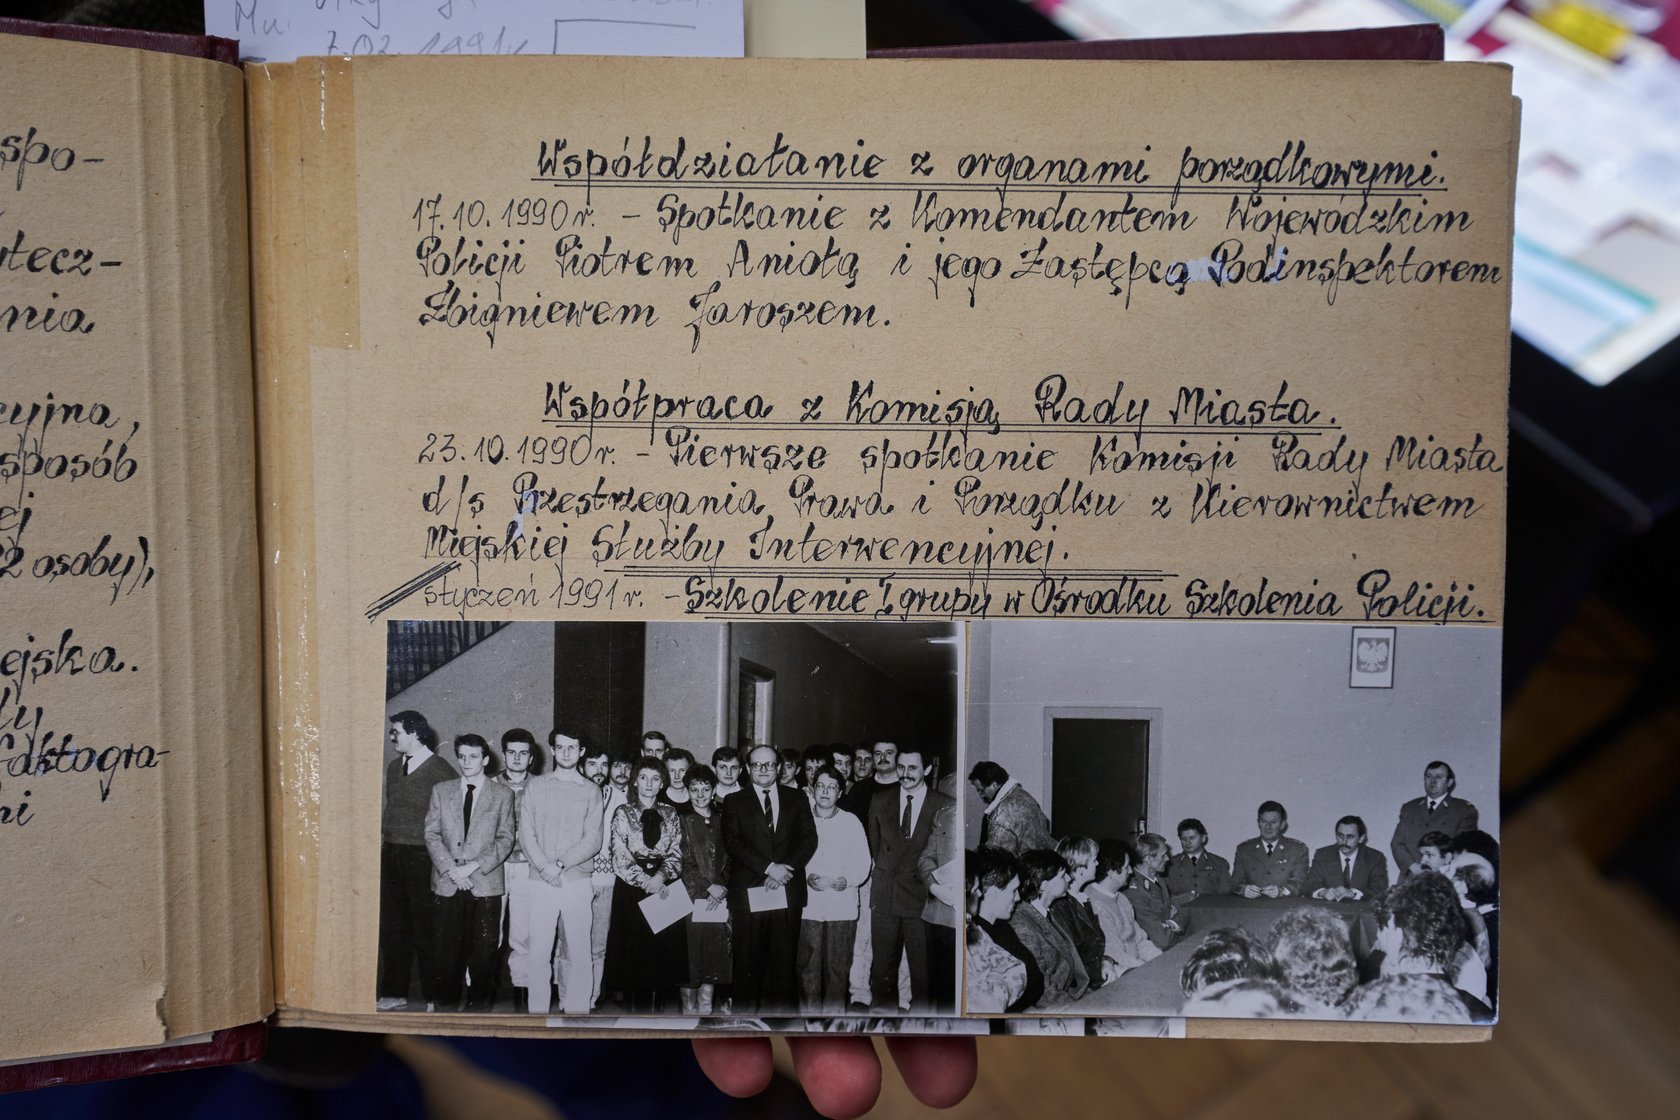 7.02.1991r
spo-
tecz-
nia
cyjna,
sposób
ej
2 osoby),
ejska.
ly
faktogra-
ki
Współdziałanie z organami porządkowymi.
17.10.1990r. - Spotkanie z Komendantem Wojewódzkim
Policji Piotrem Aniołą i jego Zastępcą Podinspektorem
Zbigniewem Jaroszem.
Współpraca z Komisją Rady Miasta.
23.10.1990r. - Pierwsze spotkanie Komisji Rady Miasta
d/s Przestrzegania Prawa i Porządku z Kierownictwem
Miejskiej Służby Interwencyjnej.
styczeń 1991r. - Szkolenie I grupy w Ośrodku Szkolenia Policji.